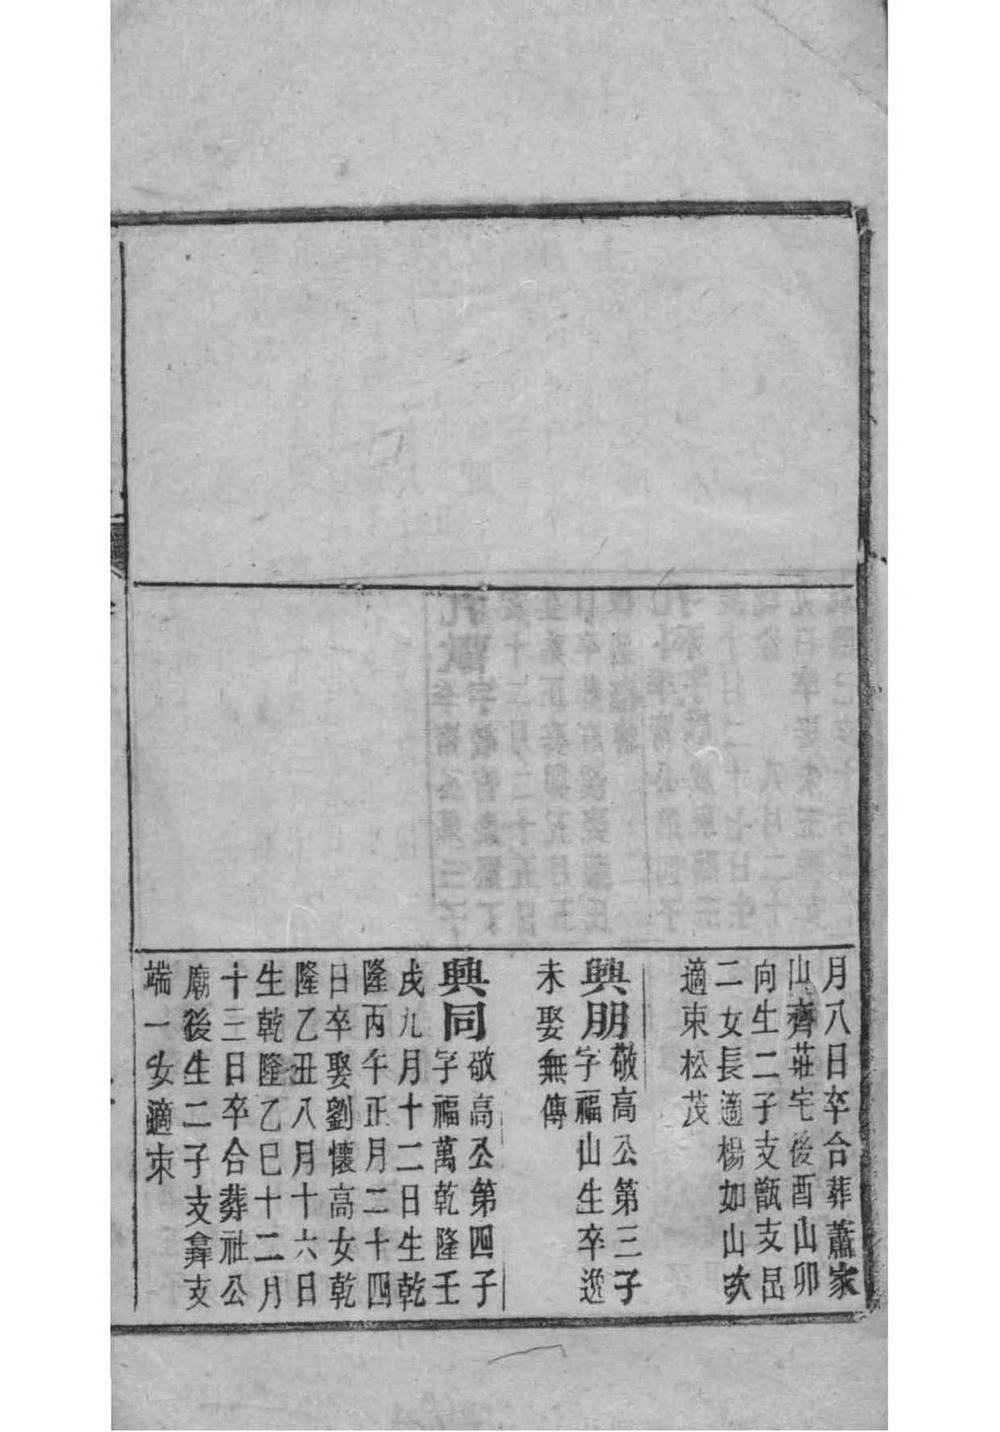 月八日卒合葬蕭家
山齊莊宅後酉山卯
向生二子支甑支昆
二女長適楊如山次
適束松茂
興朋敬高公第三子
字福山生卒逸
未娶無傳
興同敬高公第四子
字福萬乾隆壬
戌九月十二日生乾
隆丙午正月二十四
日卒娶劉懷高女乾
隆乙丑八月十六日
生乾隆乙巳十二月
十三日卒合葬社公
廟後生二子支犇支
端一女適束